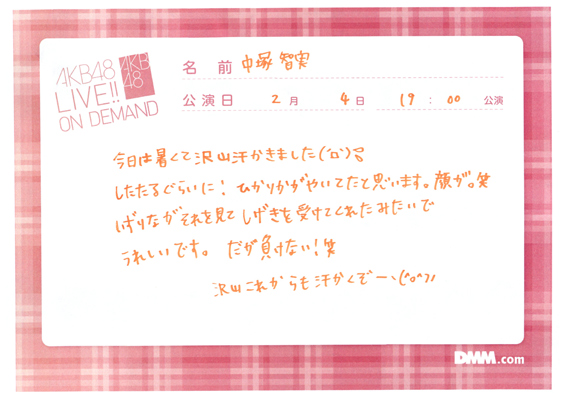 AKB48
LIVE!!
ON DEMAND
AKB
48
名 前 中塚 智実
公演日 2月 4日 19:00 公演
今日は暑くて沢山汗かきました(´ロ`)
したたるぐらいに! ひかりかがやいてたと思います。顔が。笑
ぱりながそれを見て しげきを受けてくれたみたいで
うれしいです。 だが負けない!笑
沢山これからも汗かくぞー、(^o^)ノ
DMM.com